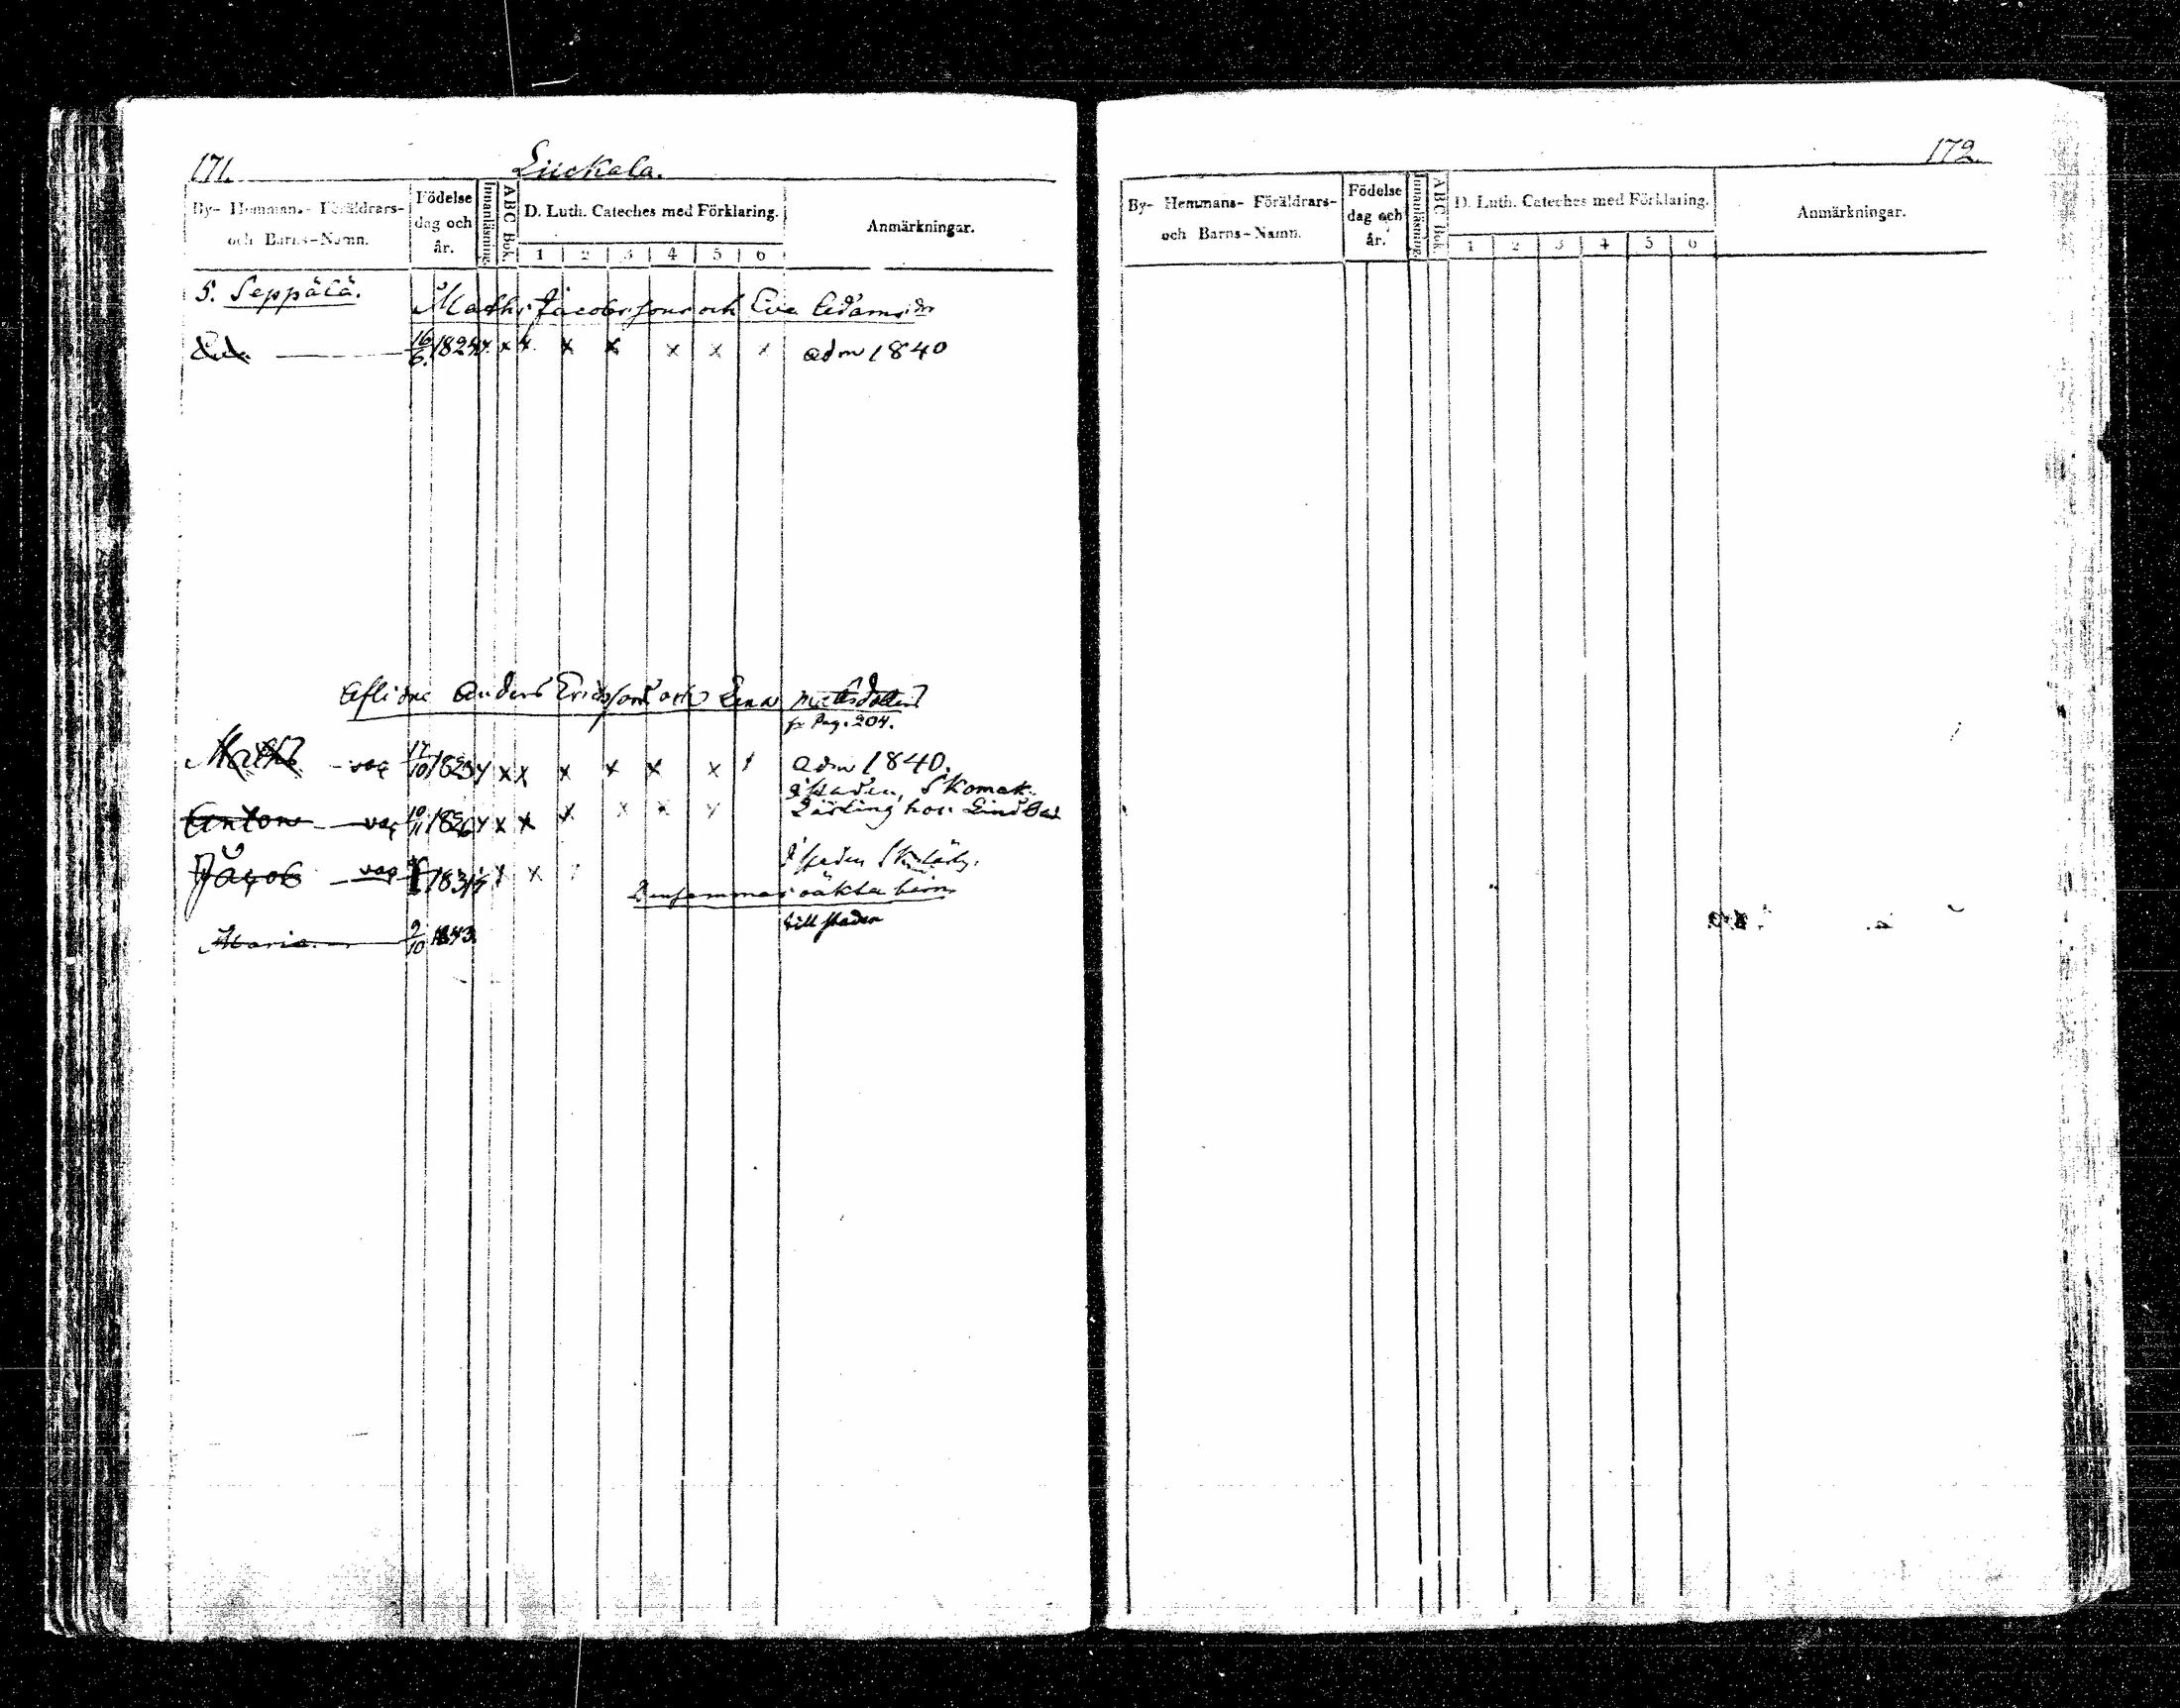 171.
Liuckala.
By- Hemmans- Föräldrars- och Barns-Namn.
Födelse dag och år.
Innanläsning.
ABC Bok.
D. Luth. Cateches med Förklaring.
1 2 3 4 5 6
Anmärkningar.
5. Seppälä.
Matts Jacobssons och Eva Adamsdr
16/6. 1824 x x x x x x x x adm 1840
Aflidne Anders Ericssons och Lena Mattsdotters
fr Pag. 204.
Matts vac 17/10 1823 x x x x x x x adm 1840.
i Staden, Skomak.
Lärling hos Lind
Anton vac 10/11 1826 x x x x x x x
i staden
Jacob vac 1831 x x x
Densammas oäkta barn
till staden
Maria 9/10 1843.
172.
By- Hemmans- Föräldrars- och Barns-Namn.
Födelse dag och år.
Innanläsning.
ABC Bok.
D. Luth. Cateches med Förklaring.
1 2 3 4 5 6
Anmärkningar.